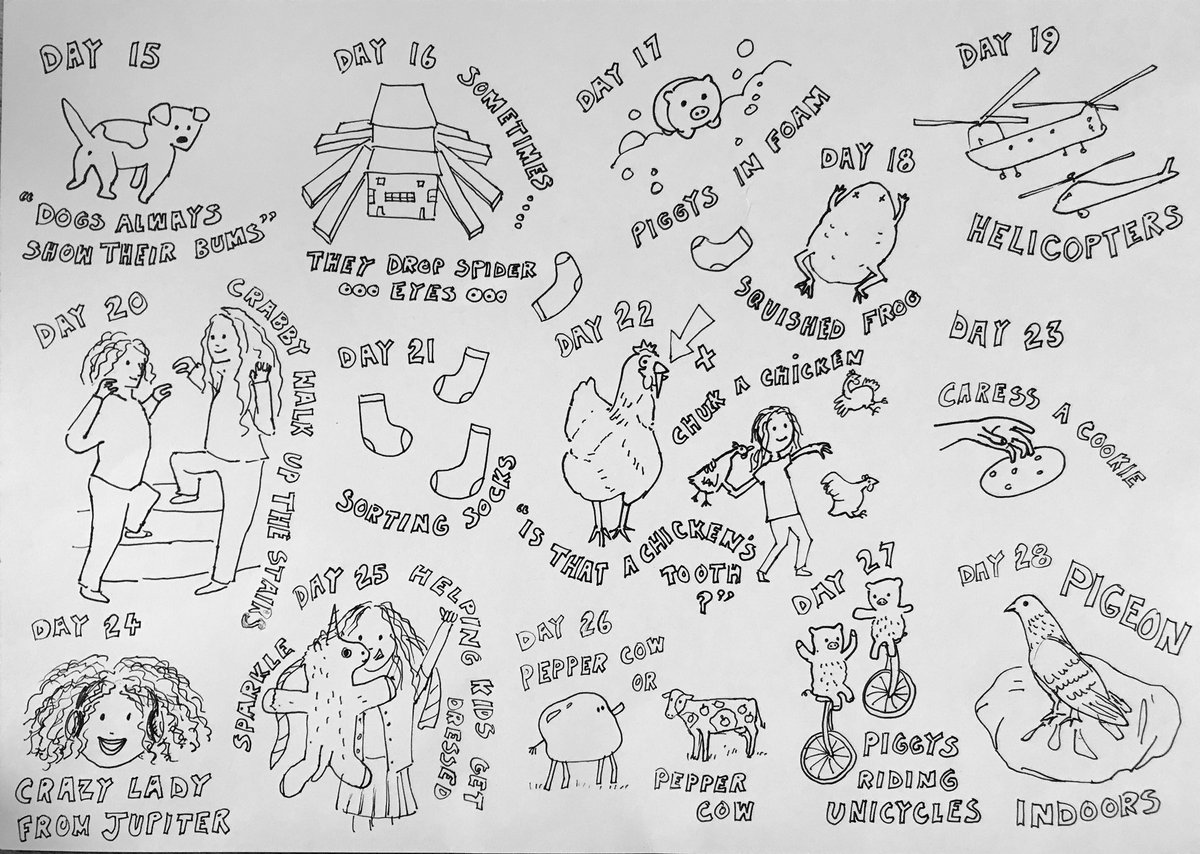 DAY 15
"DOGS ALWAYS
SHOW THEIR BUMS"
DAY 16
SOMETIMES....
THEY DROP SPIDER
EYES
DAY 17
PIGGYS IN FOAM
DAY 18
SQUISHED FROG
DAY 19
HELICOPTERS
DAY 20
CRABBY WALK UP THE STAIRS
DAY 21
SORTING SOCKS
DAY 22
+
CHUK A CHICKEN
"IS THAT A CHICKEN'S
TOOTH
?"
DAY 23
CARESS A COOKIE
DAY 24
CRAZY LADY
FROM JUPITER
DAY 25
SPARKLE
HELPING KIDS GET
DRESSED
DAY 26
PEPPER COW
OR
PEPPER
COW
DAY 27
PIGGYS
RIDING
UNICYCLES
DAY 28
PIGEON
INDOORS